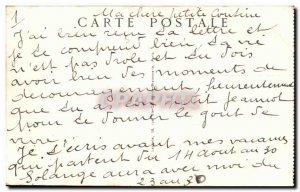 1
Ma chère petite cousine
CARTE POSTALE
J'ai bien reçu ta lettre et
je te comprend bien. La vie
n'est pas drole et tu dois
avoir bien des moments de
decouragement, heureusement
que tu as ton petit Jeannot
pour te donner le gout de
vivre.
Je t'écris avant mes vacances
qui partent du 14 aout au 30
Solange aura avec moi du
23 au 30